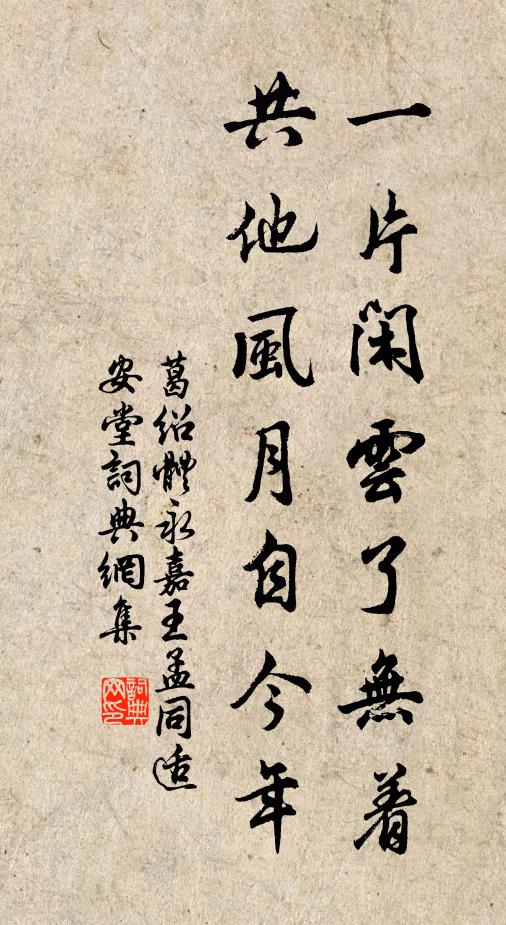 一片閑雲了無着
共他風月自今年
葛紹體永嘉王孟同適
安堂詞典網集
詞典網印